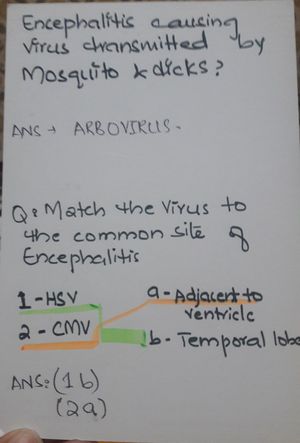 Encephalitis causing
virus transmitted by
Mosquito & dicks?
ANS → ARBOVIRUS.
Q: Match the Virus to
the common site of
Encephalitis
1 - HSV a - Adjacent to
ventricle
2 - CMV b - Temporal lobe
ANS: (1b)
(2a)